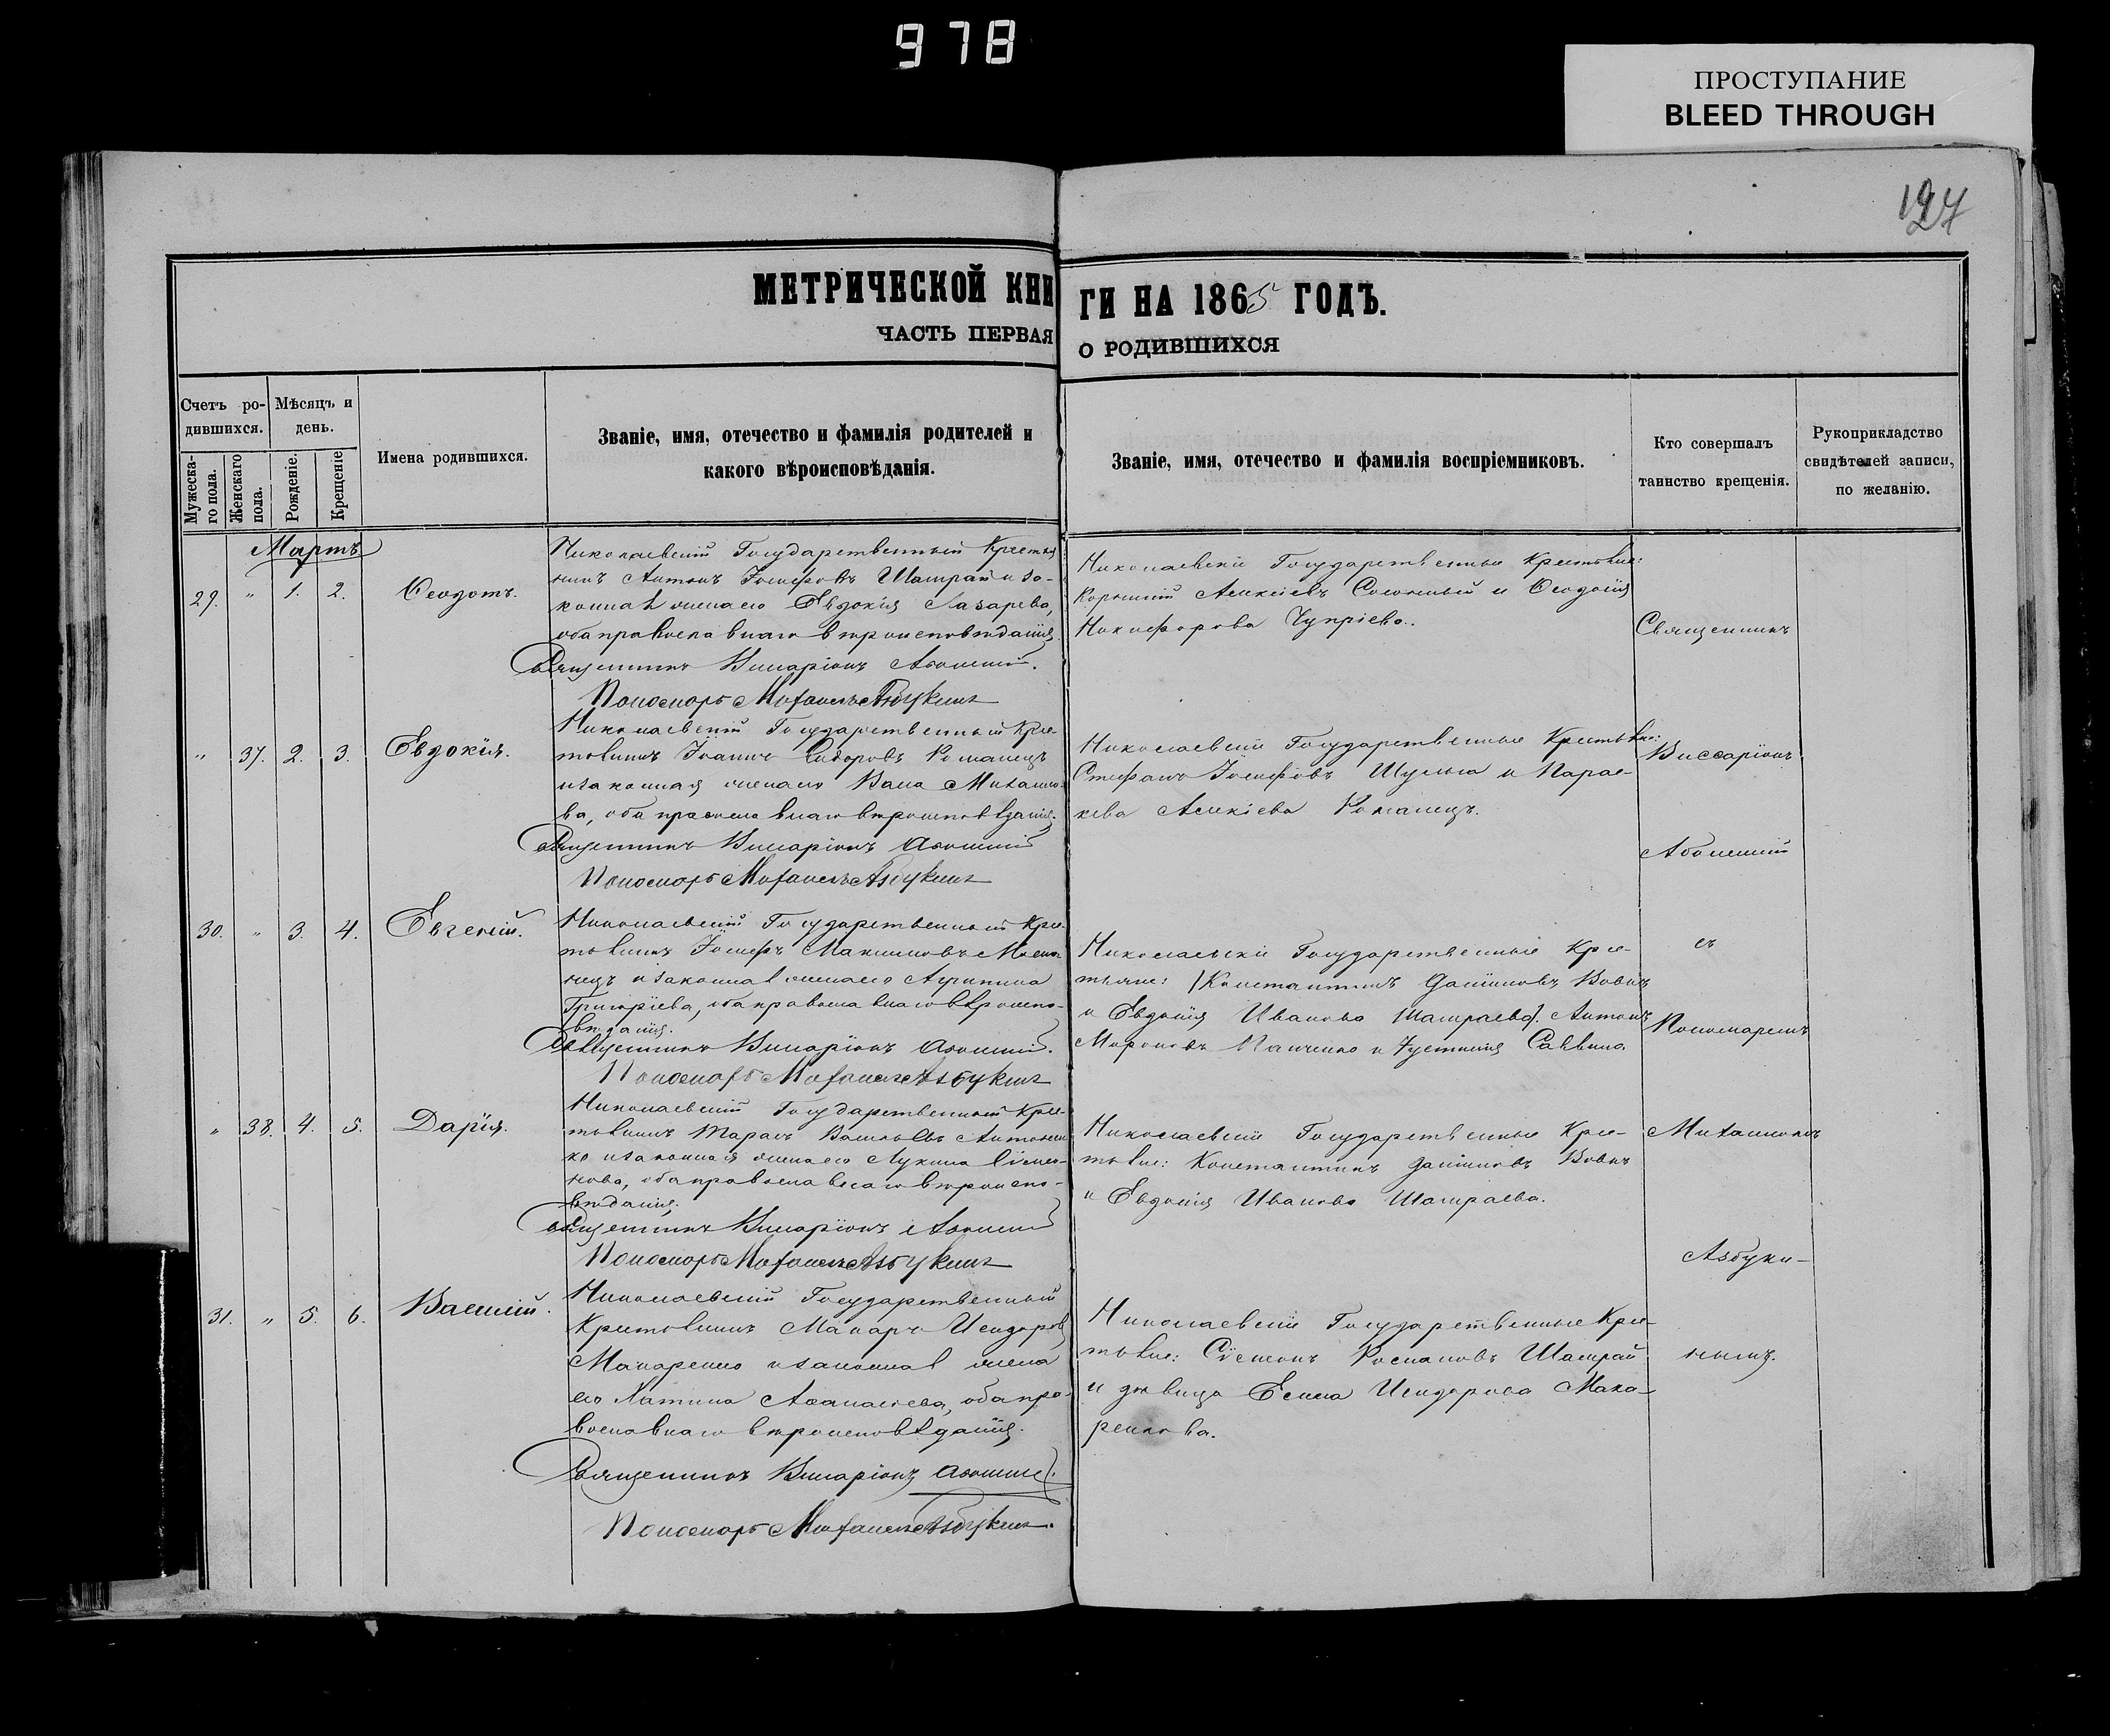 978
ПРОСТУПАНИЕ
BLEED THROUGH
127
МЕТРИЧЕСКОЙ КНИГИ НА 1865 ГОДЪ.
ЧАСТЬ ПЕРВАЯ О РОДИВШИХСЯ
Счетъ ро-
дившихся.
Мужеска-
го пола.
Женскаго
пола.
Мѣсяцъ и
день.
Рожденіе.
Крещеніе
Имена родившихся.
Званіе, имя, отечество и фамилія родителей и
какого вѣроисповѣданія.
Званіе, имя, отечество и фамилія воспріемниковъ.
Кто совершалъ
таинство крещенія.
Рукоприкладство
свидѣтелей записи,
по желанію.
Мартъ
29. " 1. 2. Ѳеодотъ.
Николаевскій Государственный Крестья
нинъ Антонъ Іосифовъ Шаграй и за-
конная жена его Евдокія Лазарева,
оба православнаго вѣроисповѣданія
Священникъ Виссаріонъ
Пономарь Азбукинъ
Николаевскіе Государственные Крестьяне:
Алексіевъ и Ѳеодосія
Никифорова Чупріева.
" 37. 2. 3. Евдокія.
Николаевскій Государственный Крес-
тьянинъ Іоаннъ Романецъ
и законная жена его Михайло-
ва, оба православнаго вѣроисповѣданія.
Священникъ Виссаріонъ
Пономарь Азбукинъ
Николаевскіе Государственные Крестьяне:
Стефанъ Іосифовъ Шульга и Парас-
кева Алексіева Романецъ.
30. " 3. 4. Евгеній.
Николаевскій Государственный Крес-
тьянинъ Іосифъ Максимовъ
и законная жена его Агрипина
Григоріева, оба православнаго вѣроиспо-
вѣданія.
Священникъ Виссаріонъ
Пономарь Азбукинъ
Николаевскіе Государственные Крес-
тьяне: Константинъ Даніиловъ Вовкъ
и Евдокія Иванова Шаграева). Антонъ
Мироновъ Панченко и Іустинія Саввина.
" 38. 4. 5. Дарія.
Николаевскій Государственный Крес-
тьянинъ Тарасъ Васильевъ Антонен
ко и законная жена его Лукина Сімео-
нова, оба православнаго вѣроиспо-
вѣданія.
Священникъ Виссаріонъ
Пономарь Азбукинъ
Николаевскіе Государственные Крес-
тьяне: Константинъ Даніиловъ Вовкъ
и Евдокія Иванова Шаграева.
31. " 5. 6. Василій.
Николаевскій Государственный
Крестьянинъ Макаръ Исидоровъ
Макаренко и законная жена
его Аѳанасіева, оба пра-
вославнаго вѣроисповѣданія.
Священникъ Виссаріонъ
Пономарь Азбукинъ.
Николаевскіе Государственные Крес-
тьяне: Сімеонъ Романовъ Шаграй
и дѣвица Елена Исидорова Мака-
ренкова.
Священникъ
Виссаріонъ
съ
Пономаремъ
Михаиломъ
Азбуки-
нымъ.